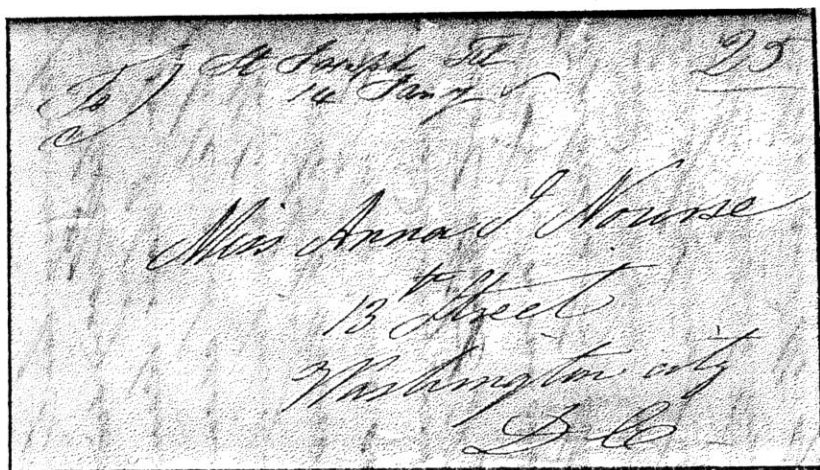 To St Joseph
25
14 Jany
Miss Anna J Nourse
13th Street
Washington city
D C